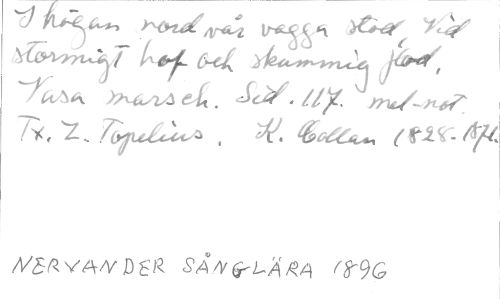 I högan nord vår vagga stod, Vid
stormigt haf och skummig flod,
Vasa marsch. Sid. 117. mel-not.
Tx. Z. Topelius. K. Collan 1828-1871.
NERVANDER SÅNGLÄRA 1896